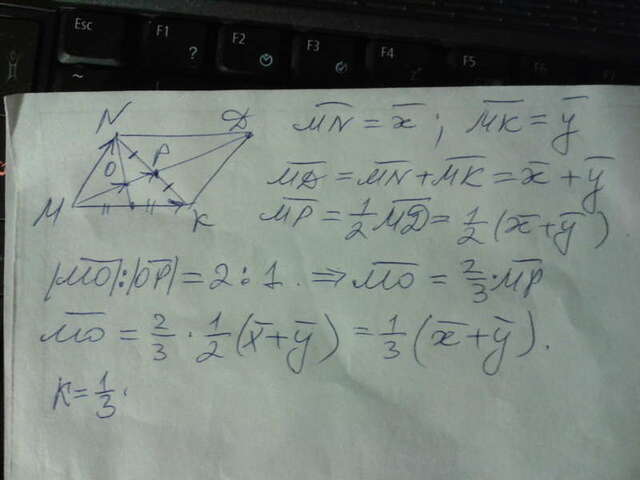 Esc
F1
?
F2
F3
F4
F5
F6
~
N
D
P
O
M
K
M̅N̅ = x̅ ; M̅K̅ = y̅
M̅D̅ = M̅N̅ + M̅K̅ = x̅ + y̅
M̅P̅ = 1/2 M̅D̅ = 1/2 (x̅ + y̅)
|M̅O̅| : |O̅P̅| = 2 : 1. ⇒ M̅O̅ = 2/3 · M̅P̅
M̅O̅ = 2/3 · 1/2 (x̅ + y̅) = 1/3 (x̅ + y̅).
K = 1/3.